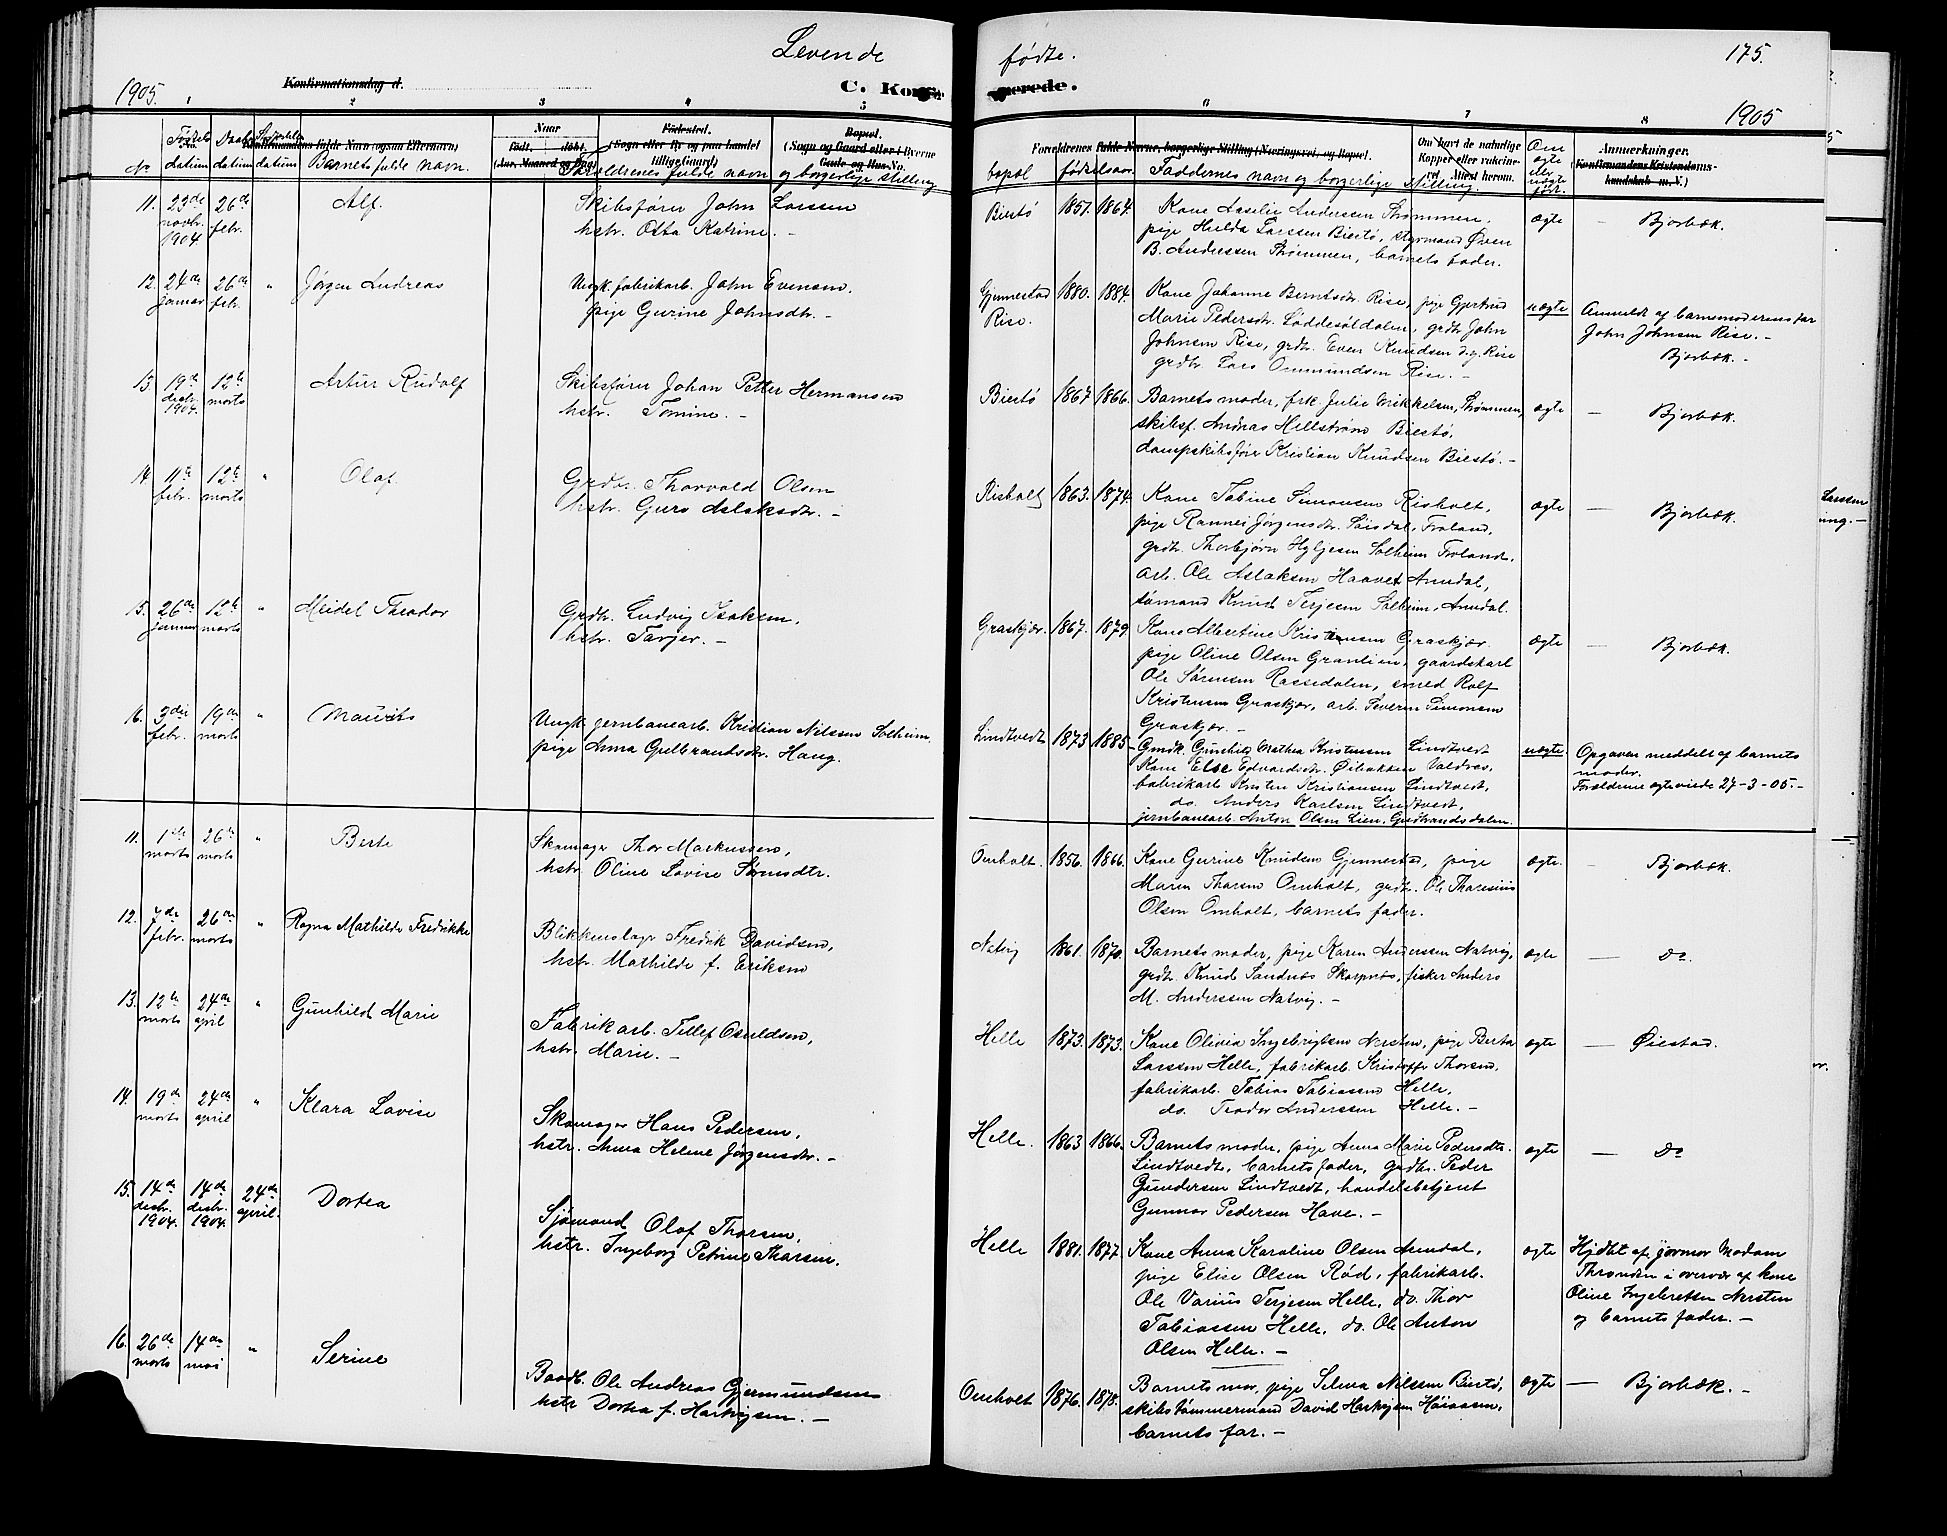 Levende
fødte.
175.
1905.
Konfirmationsdag d.
C. Konfir
merede.
1905
1 2 3 4 5
6 7 8
No
Fødsels datum
Daabs datum
datum
Barnets fulde navn.
Naar
født. døbt.
(Aar, Maaned og Dag)
Fødested.
(Sogn eller By og paa Landet tillige Gaard)
Bopæl.
(Sogn og Gaard eller i Byerne Gade og Hus-No.
Forældrenes fulde navn og borgerlige stilling
Forældrenes
bopæl
fødselsaar.
Faddernes navn og borgerlige stilling.
Om havt de naturlige Kopper eller vaccineret. Attest herom.
Om ægte eller uægte før.
Anmerkninger.
(Konfirmandens Kristendomskundskab m. V.)
11. 23de novbr. 1904 26de febr. Alf. Skibsfører John Larsen
hstr. Osta Katrine. -
Biestø 1857. 1864. Kone Aaselie Anderssen Strømmen,
pige Hulda Larssen Biestø, styrmand Øven
B. Anderssen Strømmen, barnets fader.
ægte — Bjorbæk.
12. 24de januar 26de febr. " Jørgen Andreas Ungk. fabrikarb. John Evensen,
pige Gurine Johnsdtr. -
Gjennestad Rise. 1880. 1884. Kone Johanne Berntsdr. Rise, pige Gjertrud
Marie Pedersdtr. Løddesøldalen, grdbr. John
Johnsen Rise, grdbr. Even Knudsen d.y. Rise
grdbr. Lars Ommundsen Rise. -
uægte Anmeldt af barnemoderens far
John Johnsen Rise. -
Bjorbæk. -
13. 19de decbr. 1904. 12te marts Artur Rudolf Skibsfører Johan Petter Hermansen
hstr. Tomine. -
Biestø 1867 1866. Barnets moder, frk. Julie Mikkelsen, Strømmen,
skibsf. Andreas Hellstrøm Biestø,
dampskibsfører Kristian Knudsen Biestø. -
ægte — Bjorbæk.
14. 11te febr. 12te marts " Olaf. Grdbr. Thorvald Olsen
hstr. Guro Aslaksdtr. -
Risholt 1863. 1874. Kone Tabine Simonsen Risholt,
pige Rannei Jørgensdtr. Søisdal, Froland,
grdbr. Thorbjørn Hyljesen Solheim Froland,
arb. Ole Aslaksen Haavet Arendal,
sømand Knud Terjesen Solheim, Arendal.
ægte — Bjorbæk.
15. 26de januar 12te marts " Meidel Theodor Grdbr. Ludvig Isaksen,
hstr. Tarjer. -
Graskjær. 1867. 1879. Kone Albertine Kristensen Graskjær.
pige Oline Olsen Granlien, gaardskarl
Ole Sørensen Rassedalen, smed Rolf
Kristensen Graskjær, arb. Severin Simonsen
Graskjær. -
ægte — Bjorbæk.
16. 3die febr. 19de marts " Maurits Ungk. jernbanearb. Kristian Nilssen Solheim.
pige Anna Gulbrandsdtr. Haug.
Lindtvedt 1873 1885 Gmdk. Gunhild Mathea Kristensen Lindtvedt
Kone Else Edvardsdtr. Øibakken Valdres,
fabrikarb. Kristen Kristiansen Lindtvedt,
do. Anders Karlsen Lindtvedt,
jernbanearb. Anton Olsen Lien, Gudbrandsdalen.
uægte. Opgaven meddelt af barnets
moder.
Forældrene ægteviede 27-3-05. -
11. 1ste marts 26de marts " Berte Skomager Thor Markussen,
hstr. Oline Lovise Sørensdtr.
Omholt. 1856. 1866. Kone Gurine Knudsen Gjennestad, pige
Maren Tharsen Omholt, grdbr. Ole Tharesius
Olsen Omholt, barnets fader.
ægte. — Bjorbæk.
12. 7de febr. 26de marts " Ragna Mathilde Fredrikke Blikkenslager Fredrik Davidsen,
hstr. Mathilde f. Eriksen
Natvig 1861. 1870. Barnets moder, pige Karen Anderssen Natvig,
grdbr. Knud Sandnes Skarpnes, fisker Anders
M. Anderssen Natvig. -
ægte — Do.
13. 12te marts 24de april " Gunhild Marie Fabrikarb. Tellef Osuldsen,
hstr. Marie. -
Helle 1873. 1873. Kone Olivia Ingebrigtsen Nersten, pige Berta
Larssen Helle, fabrikarb. Kristoffer Thorsen,
fabrikarb. Tobias Tobiassen Helle,
do. Teodor Anderssen Helle. -
ægte — Øiestad.
14. 19de marts 24de april " Klara Lovise Skomager Hans Pedersen,
hstr. Anna Helene Jørgensdtr. -
Helle. 1863 1866. Barnets moder, pige Anna Marie Pedersdtr.
Lindtvedt, barnets fader, grdbr. Peder
Gundersen Lindtvedt, handelsbetjent
Gunnar Pedersen Have. -
ægte — Do
15. 14de decbr. 1904. 14de decbr. 1904. 24de april. Dortea Sjømand Olaf Thorsen,
hstr. Ingeborg Petrine Tharsen.
Helle 1881. 1877. Kone Anna Karoline Olsen Arendal,
pige Elise Olsen Rød, fabrikarb.
Ole Varius Terjesen Helle, do. Thor
Tobiassen Helle, do. Ole Anton
Olsen Helle. -
ægte Hjdbt af jormor Madam
Throndsen i overvær af kone
Oline Ingebretsen Nersten
og barnets fader. -
16. 26de marts 14de mai " Serine Baadb. Ole Andreas Gjermundsen
hstr Dortea f. Hartvigsen. -
Omholt 1876. 1878. Barnets mor, pige Selma Nilssen Biestø,
skibstømmermand David Hartvigsen Høiaasen,
barnets far. -
ægte — Bjorbæk. -